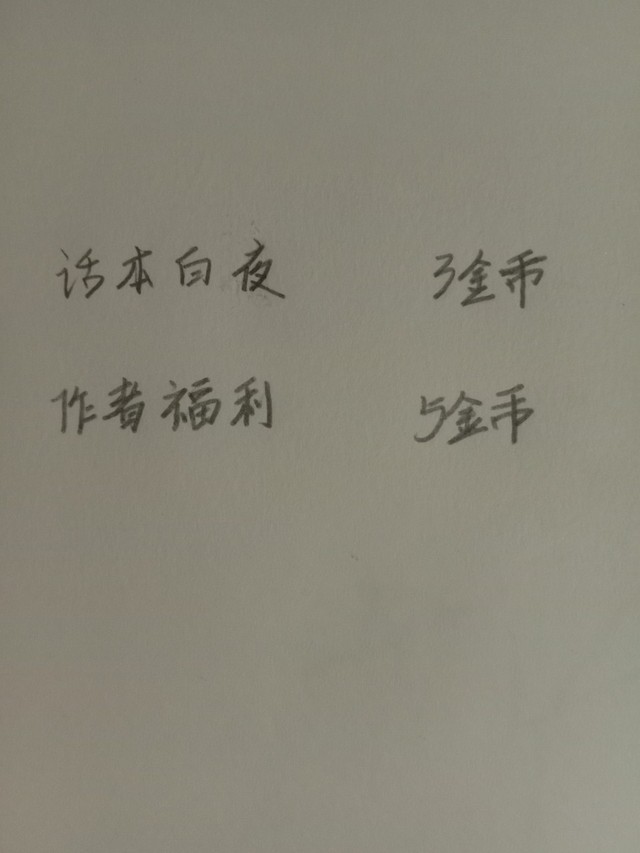 话本白夜 3金币
作者福利 5金币